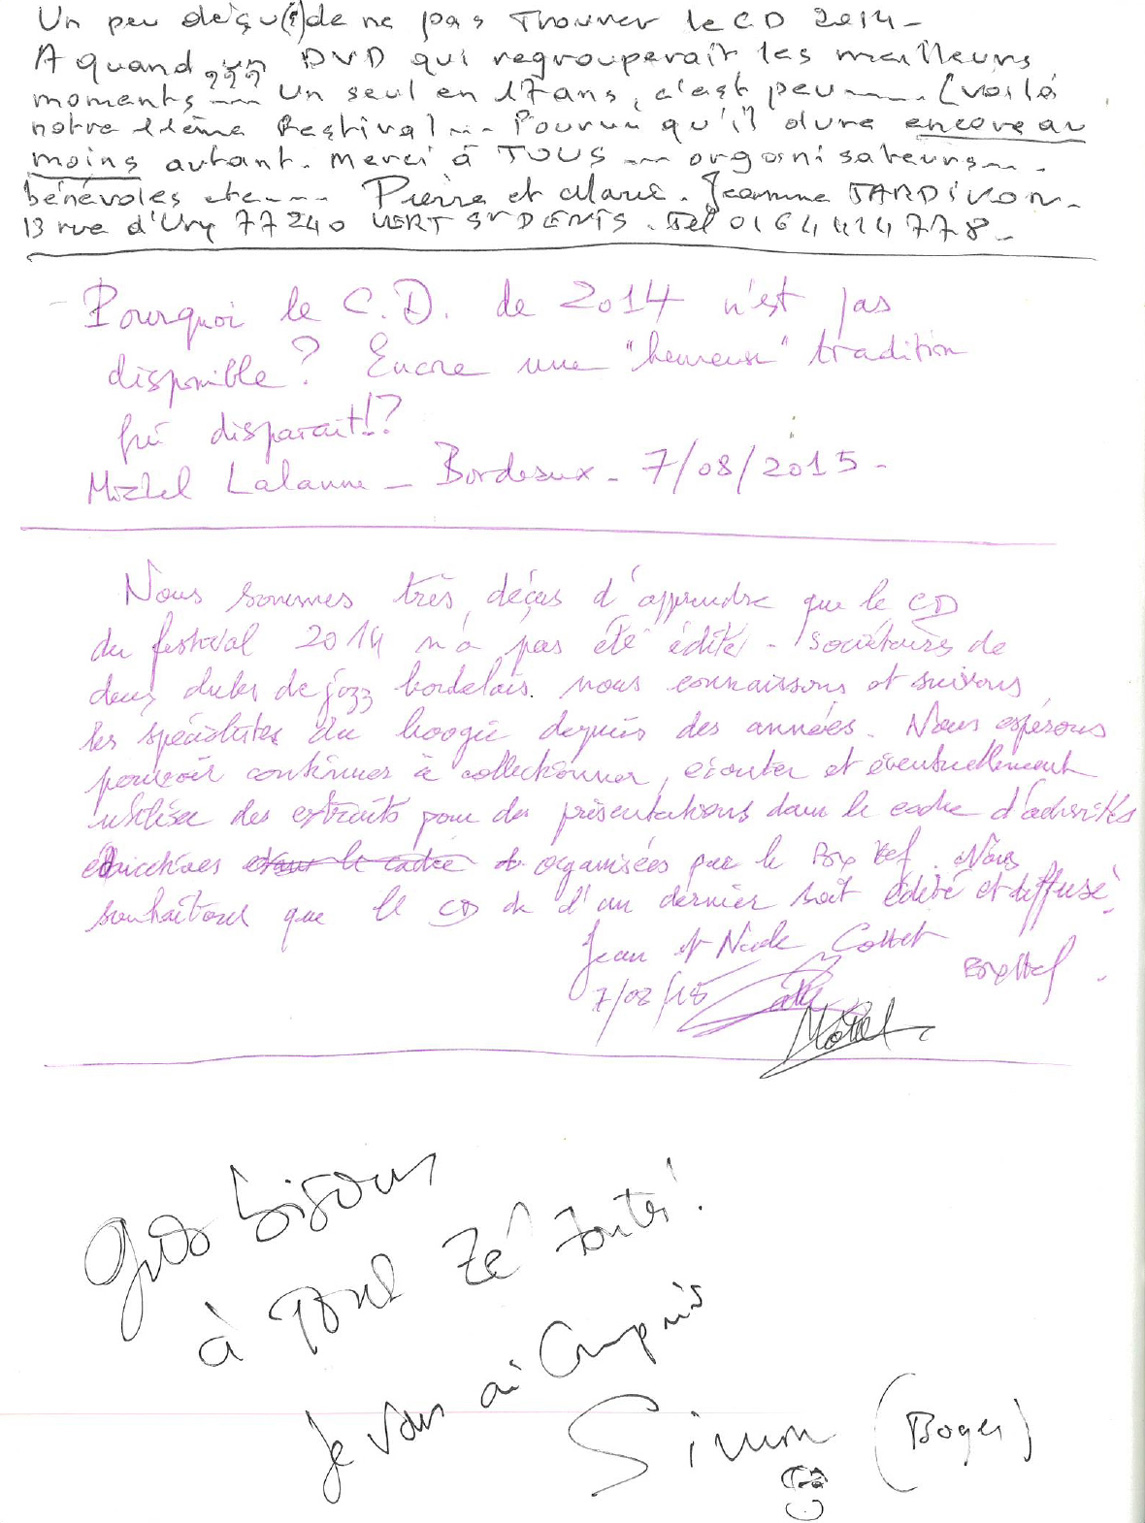 Un peu déçu(s) de ne pas Trouver le CD 2014-
A quand un DVD qui regrouperait les meilleurs
moments ??? Un seul en 17 ans, c'est peu ---- (voilà
notre 11ème Festival --- Pourvu qu'il dure encore au
moins autant. Merci à TOUS --- organisateurs ---
bénévoles etc ---- Pierre et Marie. Jeanne TARDIVON-
13 rue d'Ury 77240 VERT St DENIS. Tel 0164414778-
- Pourquoi le C.D. de 2014 n'est pas
disponible? Encore une "heureuse" tradition
qui disparait!?
Michel Lalanne - Bordeaux - 7/08/2015 -
Nous sommes très déçus d'apprendre que le CD
du festival 2014 n'a pas été édité - Sociétaires de
deux clubs de jazz bordelais. nous connaissons et suivons
les spécialistes du boogie depuis des années. Nous espérons
pouvoir continuer à collectionner, écouter et éventuellement
utiliser des extraits pour des présentations dans le cadre d'activités
dans le cadre organisées par le . Nous
souhaitons que le CD de l'an dernier soit édité et diffusé.
Jean et Nicole Cottet
7/08/15
Gros bisous
à Tous Zé Toutes!
Je vous ai Compris
Simon (Boyer)